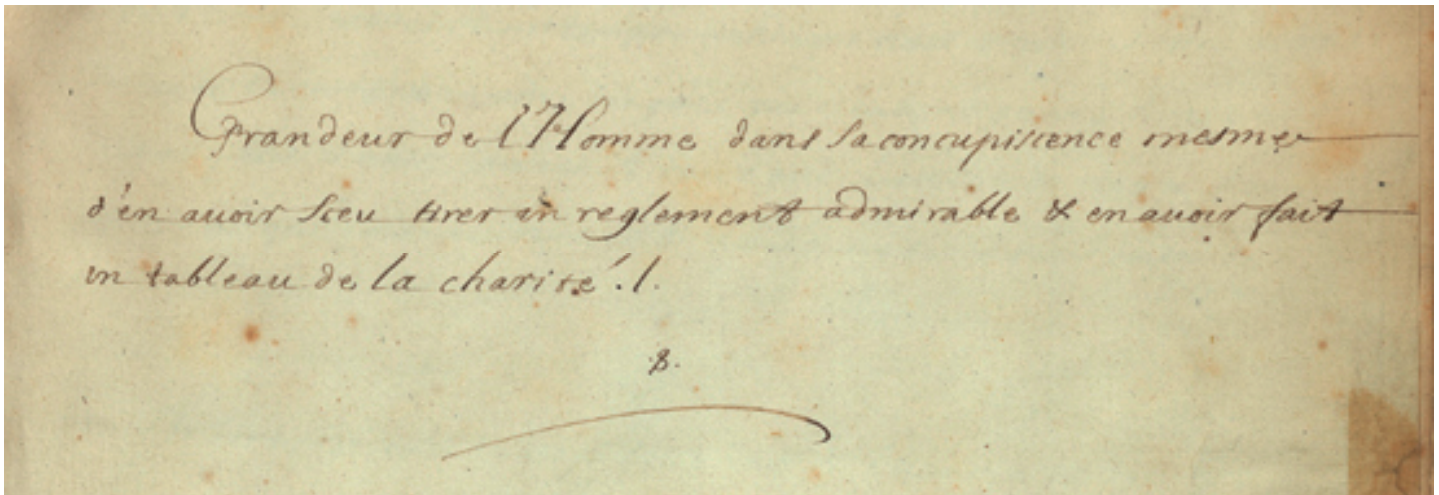 Grandeur de l'Homme dans sa concupiscence mesme
d'en auoir sceu tirer un reglement admirable & en auoir fait
un tableau de la charité ./.